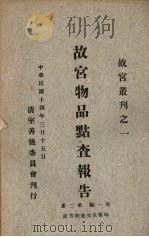 故宮叢刊之一
故宮物品點查報告
第一編 第二冊
中華民國十四年三月十五日
清室善後委員會刊行